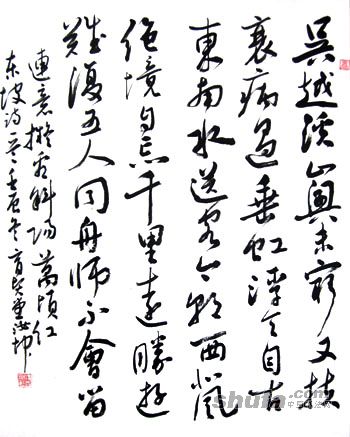 吳越溪山興未窮又扶
衰病過垂虹浮天自古
東南水送客今朝西北風
絶境自忘千里遠勝遊
難復五人同舟師不會留
連意擬看斜陽萬頃紅
东坡诗 壬辰冬
shufa.com